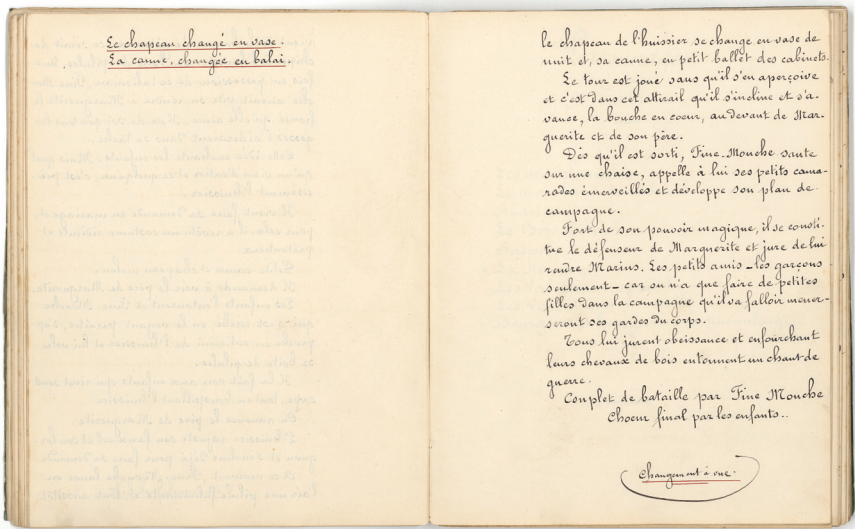 Le chapeau changé en vase.
La canne, changée en balai.
le chapeau de l'huissier se change en vase de
nuit et, sa canne, en petit ballet des cabinets.
Le tour est joué sans qu'il s'en aperçoive
et c'est dans cet attirail qu'il s'incline et s'a-
vance, la bouche en coeur, au devant de Mar-
guerite et de son père.
Dès qu'il est sorti, Fine-Mouche saute
sur une chaise, appelle à lui ses petits cama-
rades émerveillés et développe son plan de
campagne.
Fort de son pouvoir magique, il se consti-
tue le défenseur de Marguerite et jure de lui
rendre Marius. Les petits amis - les garçons
seulement - car on n'a que faire de petites
filles dans la campagne qu'il va falloir mener-
seront ses gardes du corps.
Tous lui jurent obeissance et enfourchant
leurs chevaux de bois entonnent un chant de
guerre.
Couplet de bataille par Fine Mouche
Choeur final par les enfants..
Changement à vue.